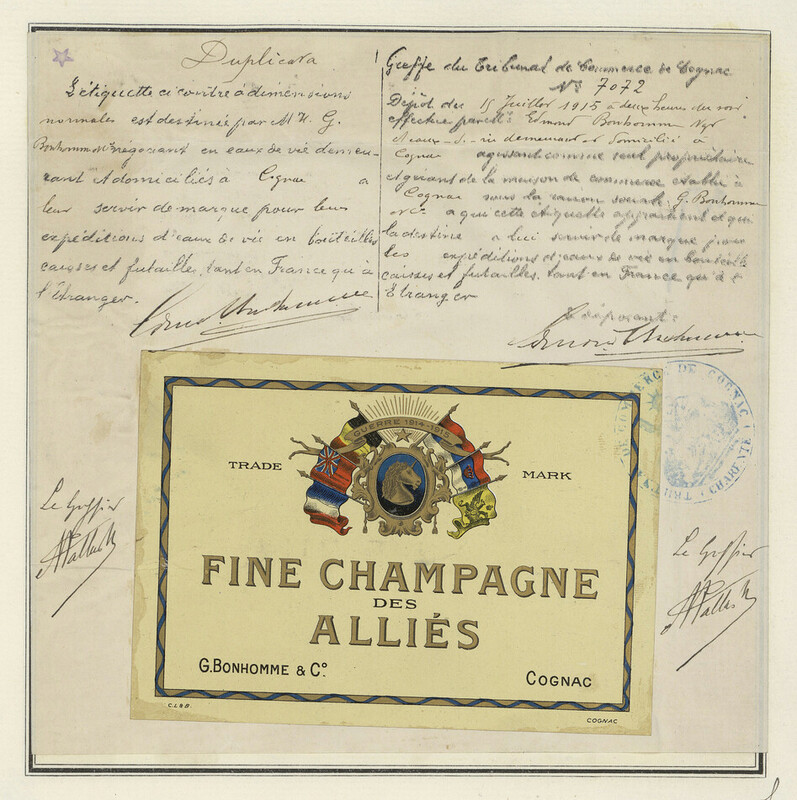 Duplicata
L'étiquette ci contre à dimensions
normales est destinée par M M. G.
Bonhomme & Cie négociant en eaux de vie demeu-
rant et domiciliés à Cognac a
leur servir de marque pour leurs
expéditions d'eaux de vie en bouteilles
caisses et futailles, tant en France qu'à
l'étranger.
Greffe du Tribunal de Commerce de Cognac
No 7072
Dépôt du 15 Juillet 1915 à deux heures du soir
effectué par Edmond Bonhomme Ngt
eaux-de-vie demeurant et domicilié à
Cognac agissant comme seul propriétaire
et gérant de la maison de commerce établie à
Cognac sous la raison sociale G. Bonhomme
& Cie a qui cette étiquette appartient et qui
la destine a lui servir de marque pour
les expéditions d'eaux de vie en bouteilles
caisses et futailles, tant en France qu'à l'
Etranger
Le déposant:
TRIB. DE COMMERCE DE COGNAC (CHARENTE)
GUERRE 1914-1915
TRADE MARK
FINE CHAMPAGNE
DES
ALLIÉS
G. BONHOMME & Co.
COGNAC
C.L&B.
COGNAC
Le Greffier
Le Greffier